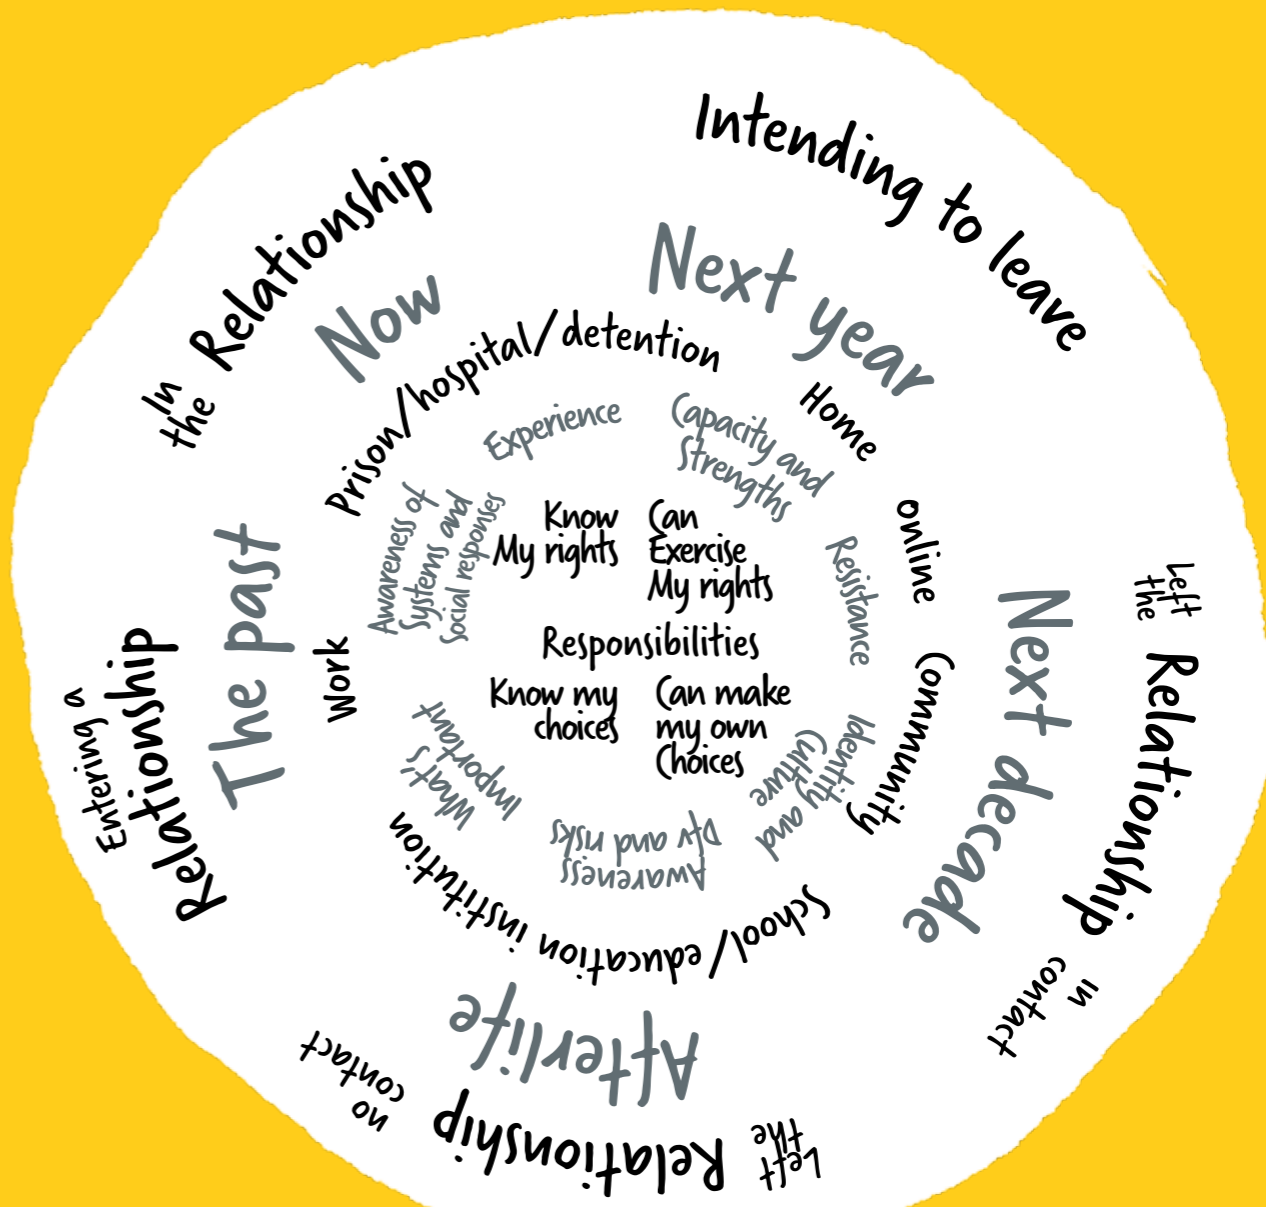 Entering a
Relationship
In
the
Relationship
Intending to leave
Left
the
Relationship
in
contact
Left
the
Relationship
no
contact
The past
Now
Next year
Next decade
Afterlife
Work
Prison/hospital/detention
Home
online
Community
School/education institution
Awareness of
Systems and
Social responses
Experience
Capacity and
Strengths
Resistance
Identity and
Culture
Awareness
Dfv and risks
What's
Important
Know
My rights
Can
Exercise
My rights
Responsibilities
Know my
choices
Can make
my own
Choices